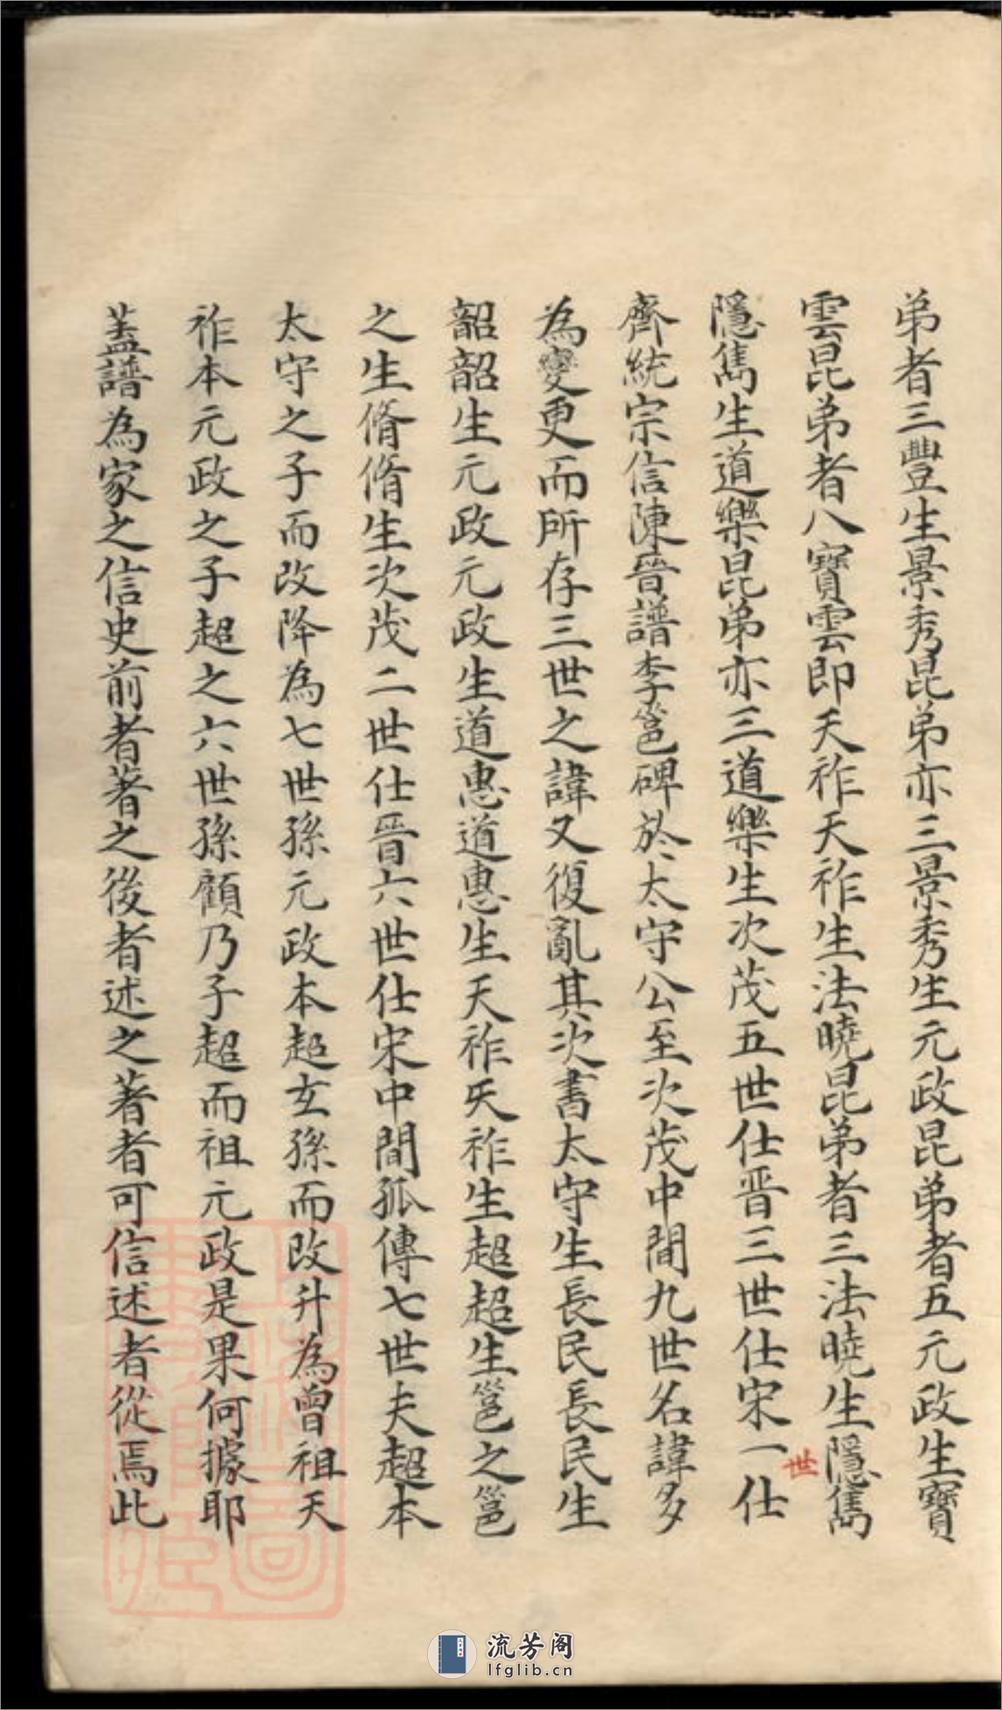 弟者三豐生景秀昆弟亦三景秀生元政昆弟者五元政生寶
雲昆弟者八寶雲即天祚天祚生法曉昆弟者三法曉生隱雋
隱雋生道樂昆弟亦三道樂生次茂五世仕晋三世仕宋一世仕
齊統宗信陳晉譜李邕碑於太守公至次茂中間九世名諱多
為變更而所存三世之諱又復亂其次書太守生長民長民生
韶韶生元政元政生道惠道惠生天祚天祚生超超生邕之邕
之生脩脩生次茂二世仕晋六世仕宋中間孤傳七世夫超本
太守之子而改降為七世孫元政本超玄孫而改升為曾祖天
祚本元政之子超之六世孫顧乃子超而祖元政是果何據耶
蓋譜為家之信史前者著之後者述之著者可信述者從焉此
流芳阁
lfglib.cn